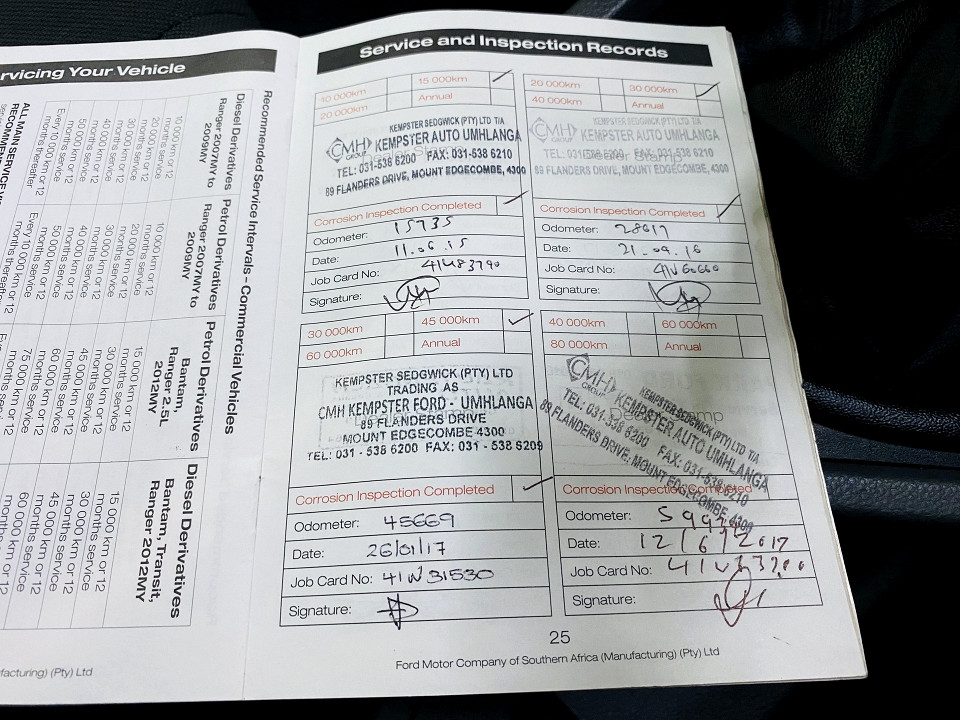 rvicing Your Vehicle
Recommended Service Intervals - Commercial Vehicles
Diesel Derivatives
Ranger 2007MY to
2009MY
10 000 km or 12
months service
20 000 km or 12
months service
30 000 km or 12
months service
40 000 km or 12
months service
50 000 km or 12
months service
Every 10 000 km or 12
months thereafter
Petrol Derivatives
Ranger 2007MY to
2009MY
10 000 km or 12
months service
20 000 km or 12
months service
30 000 km or 12
months service
40 000 km or 12
months service
50 000 km or 12
months service
Every 10 000 km or 12
months thereafter
Petrol Derivatives
Bantam,
Ranger 2.5L
2012MY
15 000 km or 12
months service
30 000 km or 12
months service
45 000 km or 12
months service
60 000 km or 12
months service
75 000 km or 12
months service
Diesel Derivatives
Bantam, Transit,
Ranger 2012MY
15 000 km or 12
months service
30 000 km or 12
months service
45 000 km or 12
months service
60 000 km or 12
months service
ALL MAIN SERVICE
RECOMME
facturing) (Pty) Ltd
Service and Inspection Records
10 000km 15 000km
20 000km Annual
KEMPSTER SEDGWICK (PTY) LTD T/A
CMH GROUP KEMPSTER AUTO UMHLANGA
TEL: 031-538 6200 FAX: 031-538 6210
89 FLANDERS DRIVE, MOUNT EDGECOMBE, 4300
Corrosion Inspection Completed
Odometer: 15735
Date: 11.06.15
Job Card No:
Signature:
20 000km 30 000km
40 000km Annual
KEMPSTER SEDGWICK (PTY) LTD T/A
CMH GROUP KEMPSTER AUTO UMHLANGA
Dealer Stamp
TEL: 031-538 6200 FAX: 031-538 6210
89 FLANDERS DRIVE, MOUNT EDGECOMBE, 4300
Corrosion Inspection Completed
Odometer: 28617
Date: 21.04.16
Job Card No:
Signature:
30 000km 45 000km
60 000km Annual
KEMPSTER SEDGWICK (PTY) LTD
TRADING AS
CMH KEMPSTER FORD - UMHLANGA
89 FLANDERS DRIVE
MOUNT EDGECOMBE 4300
TEL: 031 - 538 6200 FAX: 031 - 538 6209
Corrosion Inspection Completed
Odometer: 45669
Date: 26/01/17
Job Card No: 41W31530
Signature:
40 000km 60 000km
80 000km Annual
Dealer Stamp
KEMPSTER SEDGWICK (PTY) LTD T/A
CMH GROUP KEMPSTER AUTO UMHLANGA
TEL: 031-538 6200 FAX: 031-538 6210
89 FLANDERS DRIVE, MOUNT EDGECOMBE, 4300
Corrosion Inspection Completed
Odometer:
Date: 12/6/2017
Job Card No:
Signature:
25
Ford Motor Company of Southern Africa (Manufacturing) (Pty) Ltd